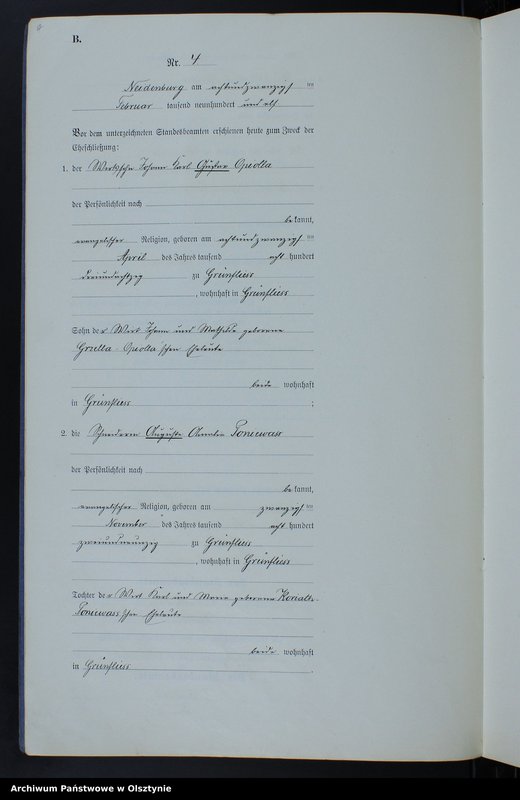 B.
Nr. 4
Neidenburg am achtundzwanzigsten
Februar tausend neunhundert und elf
Vor dem unterzeichneten Standesbeamten erschienen heute zum Zweck der
Eheschließung:
1. der Wirtssohn Johann Karl Gustav Opiolla
der Persönlichkeit nach
bekannt,
evangelischer Religion, geboren am achtundzwanzigsten
April des Jahres tausend acht hundert
dreiundachtzig zu Grünfliess
, wohnhaft in Grünfliess
Sohn der Wirt Johann und Mathilde geborene
Opiolla'schen Eheleute
beide wohnhaft
in Grünfliess ;
2. die Schneiderin Auguste Amalie Ponewass
der Persönlichkeit nach
bekannt,
evangelischer Religion, geboren am zwanzigsten
November des Jahres tausend acht hundert
zweiundneunzig zu Grünfliess
, wohnhaft in Grünfliess
Tochter der Wirt Karl und Marie geborene
Ponewass'schen Eheleute
beide wohnhaft
in Grünfliess .
Archiwum Państwowe w Olsztynie